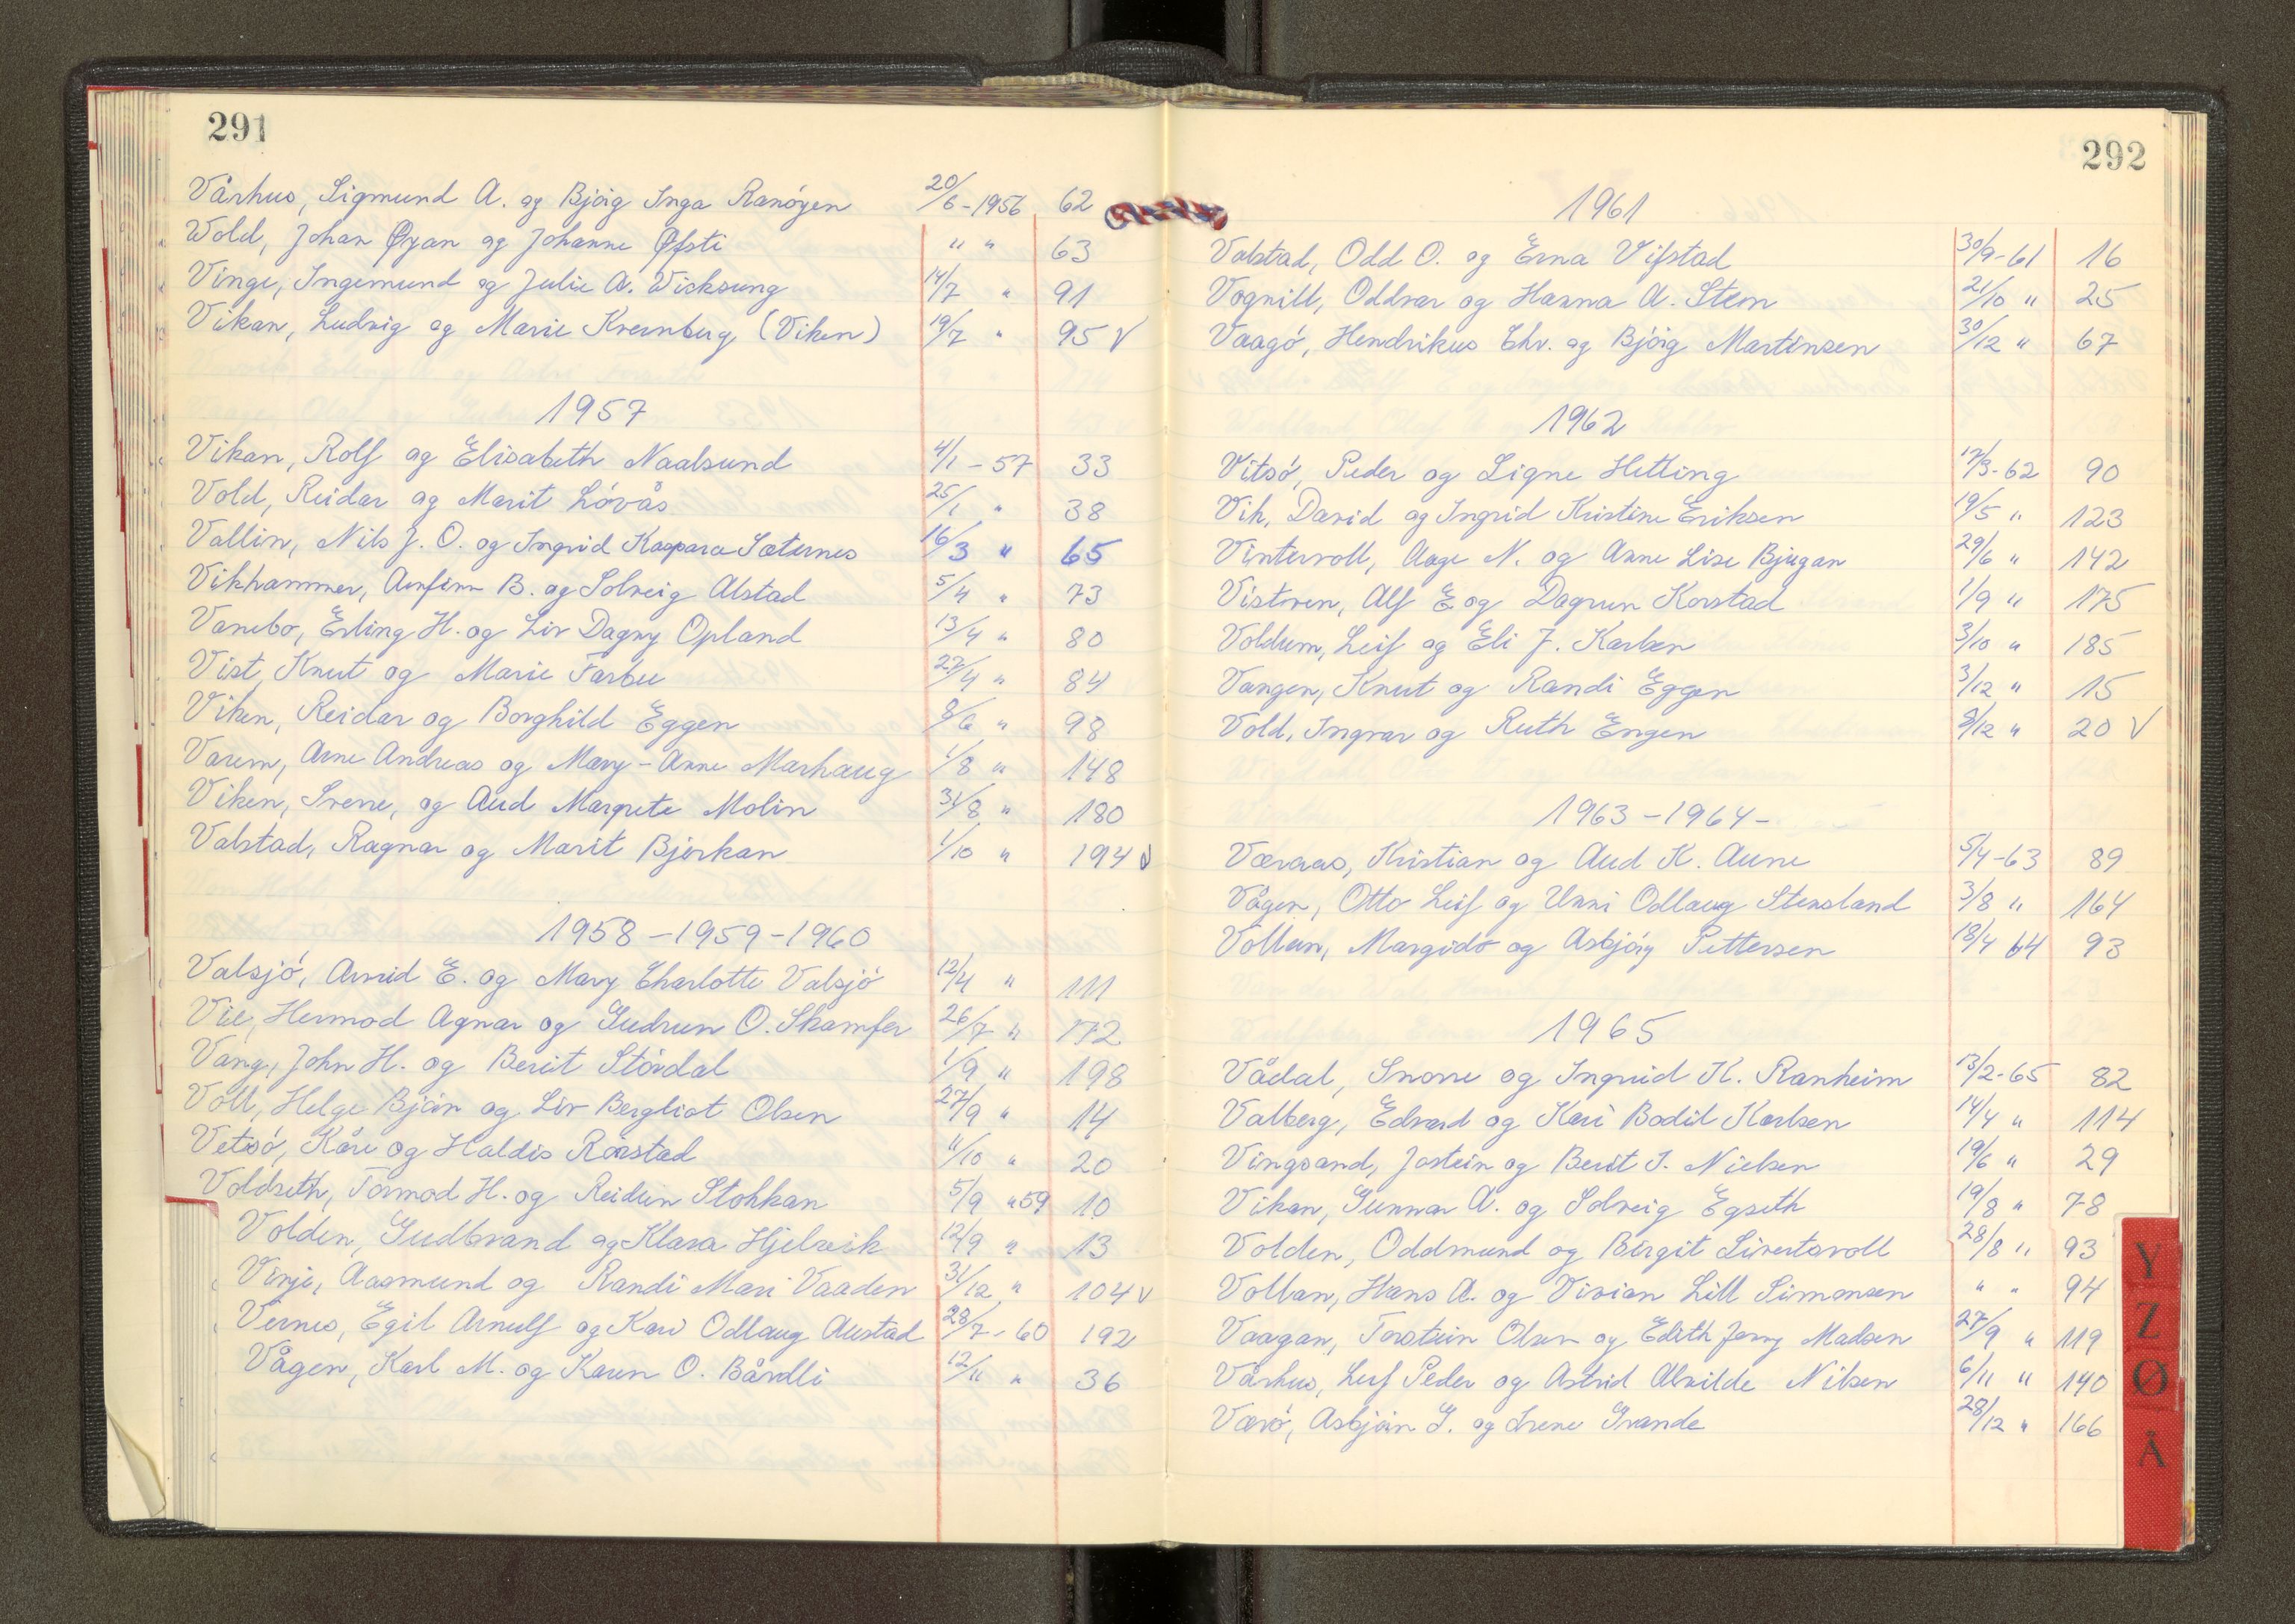 291
Vårhus, Sigmund A. og Bjørg Inga Ranøyen 20/6-1956 62
Wold, Johan Øyan og Johanne Øfsti " " 63
Vinge, Ingemund og Julie A. Wicksung 14/7 " 91
Vikan, Ludvig og Marie Kvernberg (Viken) 19/7 " 95 V
1957
Vikan, Rolf og Elisabeth Naalsund 4/1-57 33
Vold, Reidar og Marit Løvås 25/1 " 38
Vallin, Nils J. O. og Ingrid Kaspara Sæternes 16/3 " 65
Vikhammer, Arnfinn B. og Solveig Alstad 5/4 " 73
Vanebo, Erling H. og Liv Dagny Opland 13/4 " 80
Vist, Knut og Marie Farbu 27/4 " 84
Viken, Reidar og Borghild Eggen 8/6 " 98
Varem, Arne Andreas og Mary-Anne Marhaug 1/8 " 148
Viken, Sverre, og Aud Margrete Molin 31/8 " 180
Valstad, Ragnar og Marit Bjerkan 1/10 " 194 V
1958-1959-1960
Valsjó, Arvid E. og Mary Charlotte Valsjó 12/4 " 111
Vie, Hermod Agnar og Gudrun O. Skamfer 26/7 " 172
Vang, John H. og Berit Stördal 1/9 " 198
Voll, Helge Bjørn og Liv Bergliot Olsen 27/9 " 14
Vetsó, Kåre og Haldis Rørstad 11/10 " 20
Voldseth, Tormod H. og Reidun Stokkan 5/9 " 59 10
Volden, Gudbrand og Klara Hjelvik 12/9 " 13
Vinje, Aasmund og Randi Mari Vaaden 31/12 " 104 V
Vernes, Egil Arnulf og Kari Odlaug Austad 28/7-60 192
Vågen, Karl M. og Karen O. Bårdli 12/11 " 36
292
1961
Valstad, Odd O. og Erna Vifstad 30/9-61 16
Vognill, Oddvar og Hanna A. Stem 21/10 " 25
Vaagó, Hendrikus Chr. og Bjórg Martinsen 30/12 " 67
1962
Vitsó, Peder og Signe Helling 17/3-62 90
Vik, David og Ingrid Kristine Eriksen 19/5 " 123
Vintervoll, Aage N. og Anne Lise Bjugan 29/6 " 142
Vistven, Alf E. og Dagrun Korstad 1/9 " 175
Voldum, Leif og Eli J. Karlsen 3/10 " 185
Vangen, Knut og Randi Eggen 3/12 " 15
Vold, Ingvar og Ruth Engen 8/12 " 20 V
1963-1964-
Væraas, Kristian og Aud K. Aune 5/4-63 89
Vågen, Otto Leif og Unni Odlaug Stensland 3/8 " 164
Vollan, Margido og Asbjørg Pettersen 18/4 64 93
1965
Vådal, Snorre og Ingrid K. Ranheim 13/2-65 82
Valberg, Edvard og Kari Bodil Karlsen 14/4 " 114
Vingsand, Jostein og Berit I. Nielsen 19/6 " 29
Vikan, Gunnar A. og Solveig Egseth 19/8 " 78
Volden, Oddmund og Birgit Sivertsvoll 28/8 " 93
Vollan, Hans A. og Vivian Lill Simonsen " " 94
Vaagan, Torstein Olsen og Edith Jenny Madsen 27/9 " 119
Vårhus, Leif Peder og Astrid Alvilde Nilsen 6/11 " 140
Væró, Asbjørn G. og Irene Grande 28/12 " 166
Y
Z
Ø
Å